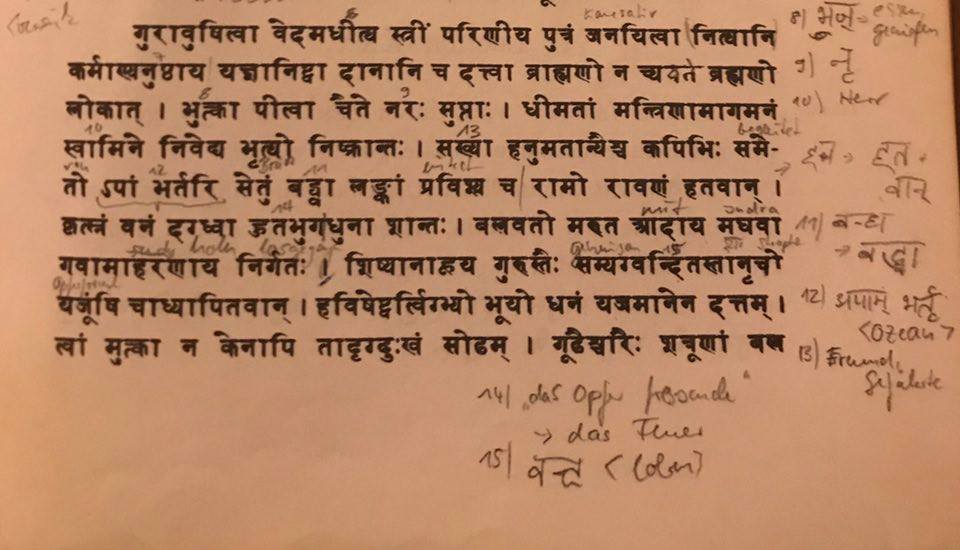 गुरावुषित्वा वेदमधीत्य स्त्रीं परिणीय पुत्रं जनयित्वा नित्यानि
कर्माण्यनुष्ठाय यज्ञानिष्ट्वा दानानि च दत्त्वा ब्राह्मणो न च्यवते ब्रह्मणो
लोकात् । भुक्त्वा पीत्वा चैते नरः सुप्ताः । धीमतां मन्त्रिणामागमनं
स्वामिने निवेद्य भृत्यो निष्क्रान्तः । सख्या हनुमतान्यैश्च कपिभिः समे-
तो ऽपां भर्तरि सेतुं बद्ध्वा लङ्कां प्रविश्य च रामो रावणं हतवान् ।
कृत्स्नं वनं दग्ध्वा हुतभुगधुना शान्तः । बलवतो मरुत आदाय मघवा
गवामाहरणाय निर्गतः । शिष्यानाहूय गुरुस्तैः सम्यग्वन्दितस्तानृचो
यजूंषि चाध्यापितवान् । हविषेष्ट्वर्त्विग्भ्यो भूयो धनं यजमानेन दत्तम् ।
त्वां मुक्त्वा न केनापि तादृग्दुःखं सोढम् । गूढैश्चरैः शत्रूणां बल
8) भुज् = essen
genießen
9) नृ
10) Herr
begleitet
हन → हत
वान्
mit
Indra
→ बद्ध्वा
12) अपाम् भर्तृ
<Ozean>
13) Freund,
Gefährte
14) "das Opfer fressende"
→ das Feuer
15) वन्द् <loben>